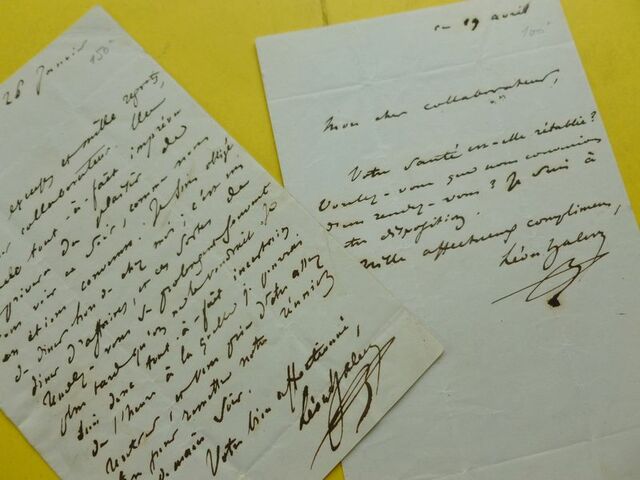 26 Janvier
150
excuses et mille regrets,
collaborateur. Une
tout-à-fait imprévue
privera du plaisir de
vous voir ce soir, comme nous
en étions convenus. Je suis obligé
de dîner hors de chez moi; c'est un
dîner d'affaires, et ces sortes de
rendez-vous se prolongent souvent
plus tard qu'on ne le voudrait. Je
suis donc tout-à-fait incertain
de l'heure à laquelle je pourrai
rentrer, et vous prie d'être assez
bon pour remettre notre réunion
à demain soir.
Votre bien affectionné,
Léon Halévy
ce 19 avril
100
Mon cher collaborateur,
Votre santé est-elle rétablie?
Voulez-vous que nous convenions
d'un rendez-vous? Je suis à
votre disposition.
Mille affectueux complimens,
Léon Halévy